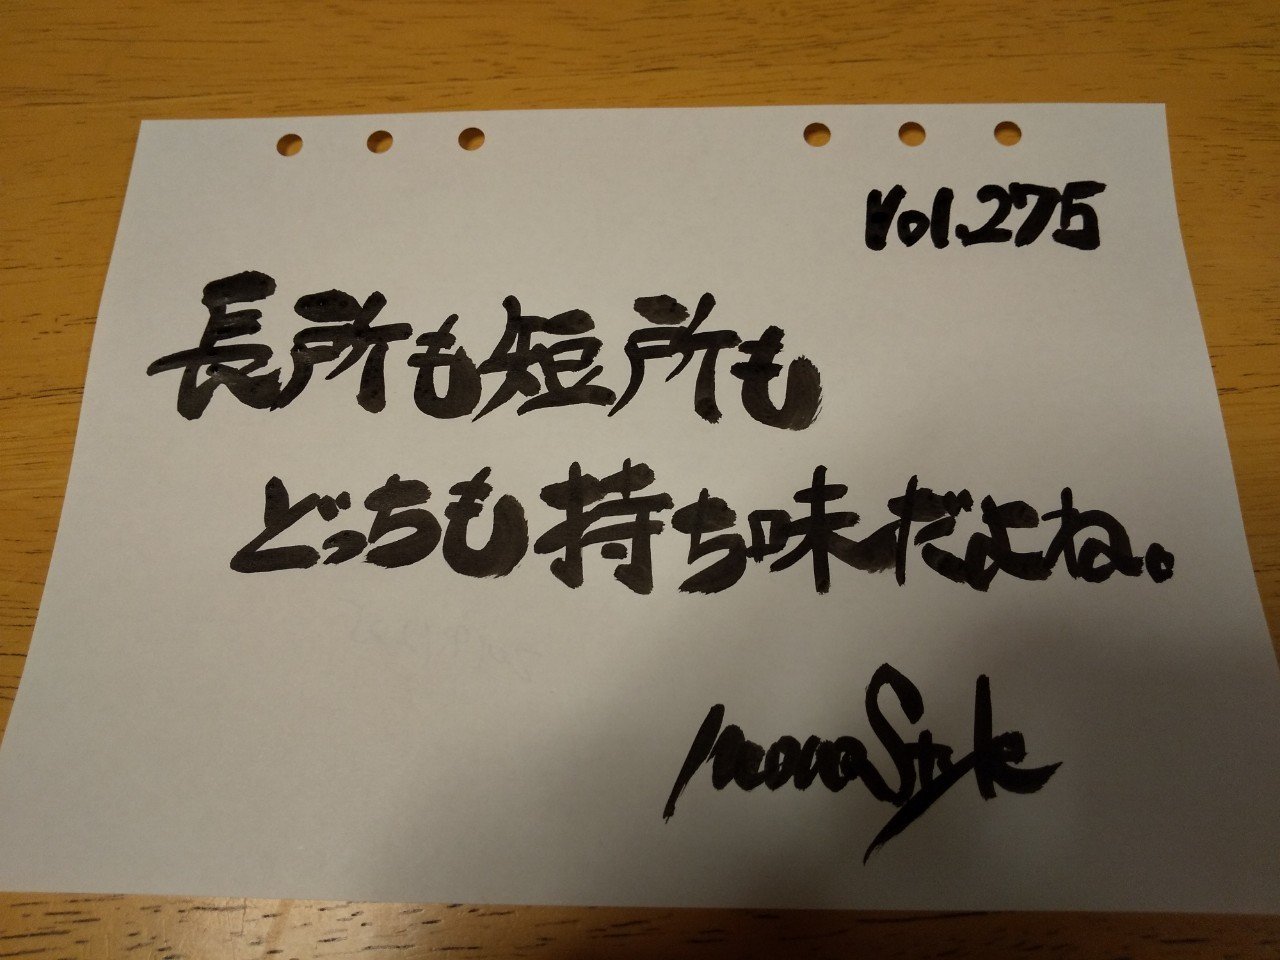 Vol.275
長所も短所も
どっちも持ち味だよね。
monoStyle